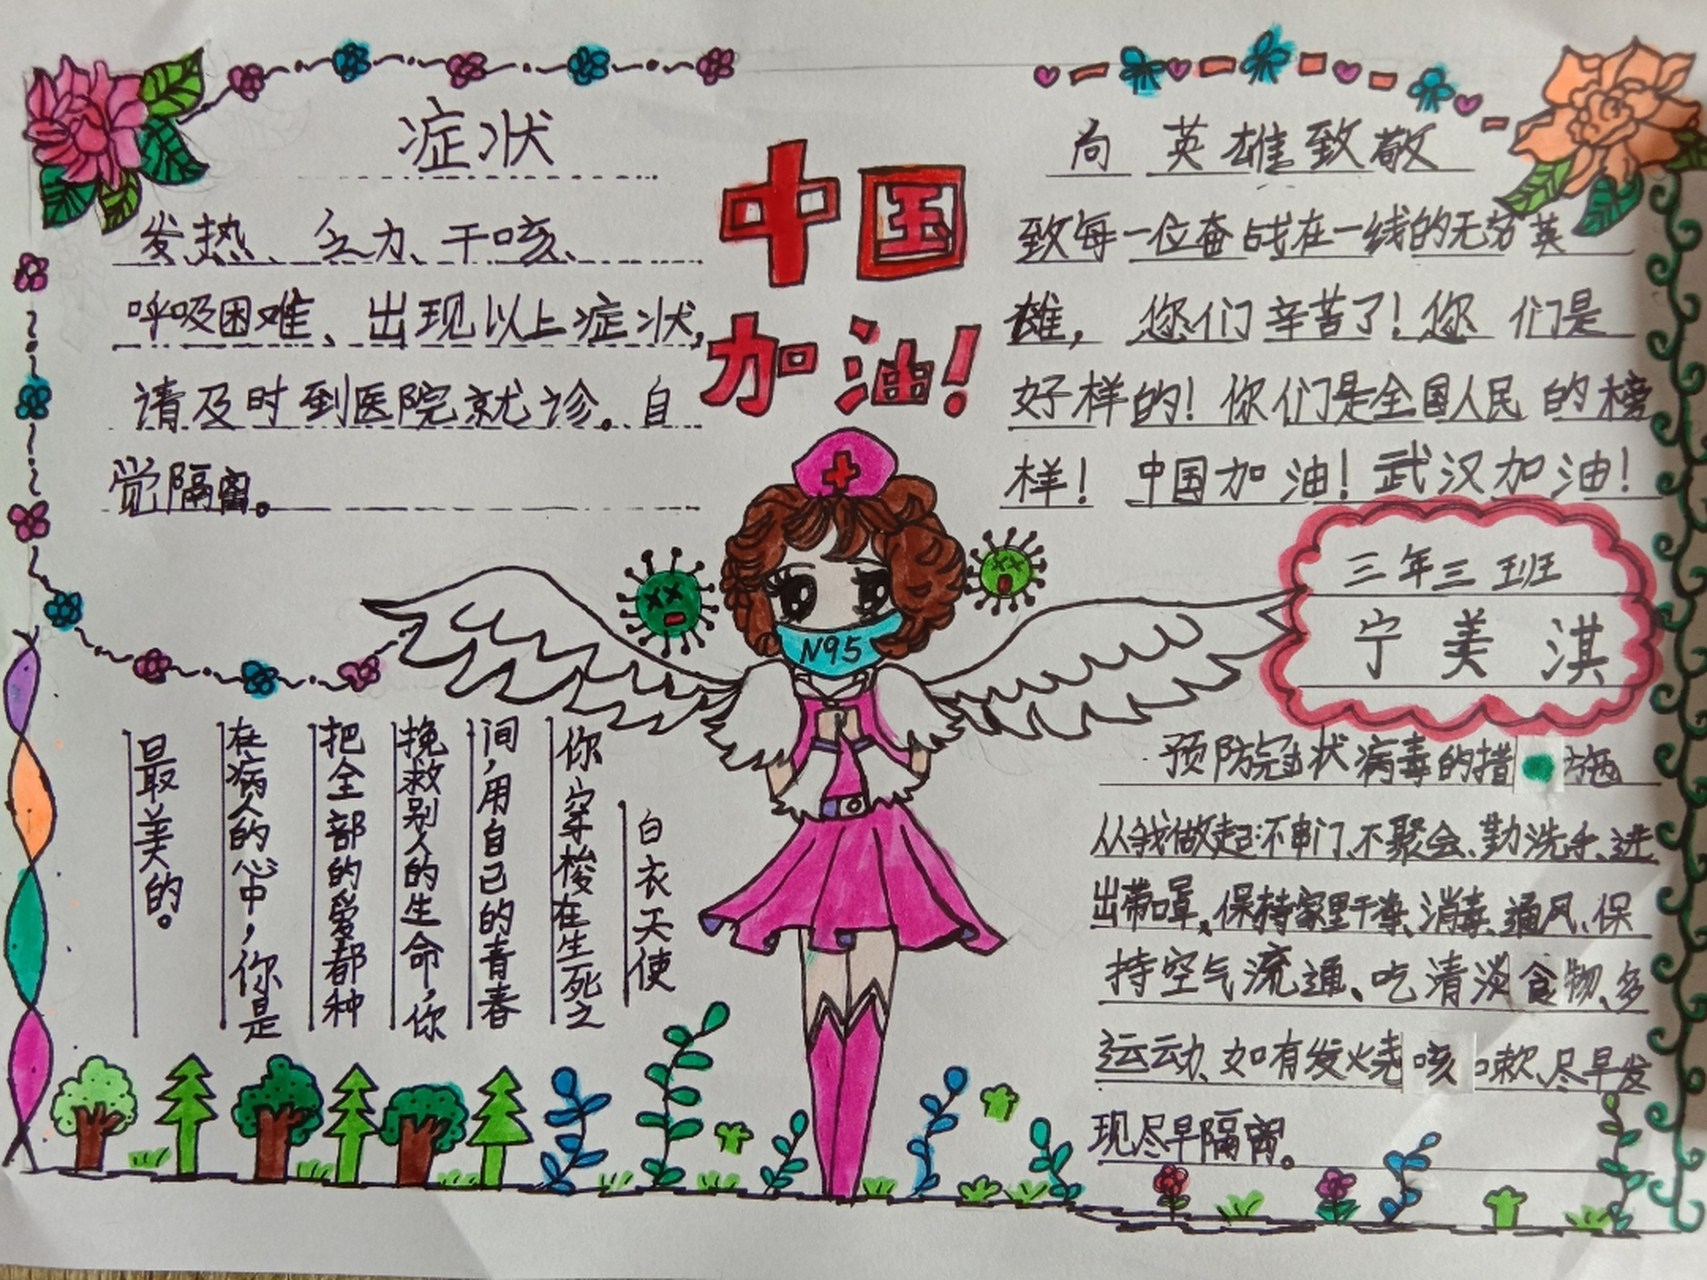 症状
发热、乏力、干咳、
呼吸困难、出现以上症状,
请及时到医院就诊。自
觉隔离。
中国
加油!
向英雄致敬
致每一位奋战在一线的无名英
雄，您们辛苦了！您们是
好样的！你们是全国人民的榜
样！中国加油！武汉加油！
三年三班
宁美淇
N95
白衣天使
你穿梭在生死之
间，用自己的青春
挽救别人的生命，你
把全部的爱都种
在病人的心中，你是
最美的。
预防冠状病毒的措施
从我做起:不串门、不聚会、勤洗手、进
出带罩、保持家里干净、消毒、通风、保
持空气流通、吃清淡食物、多
运动、如有发烧咳嗽、尽早发
现尽早隔离。